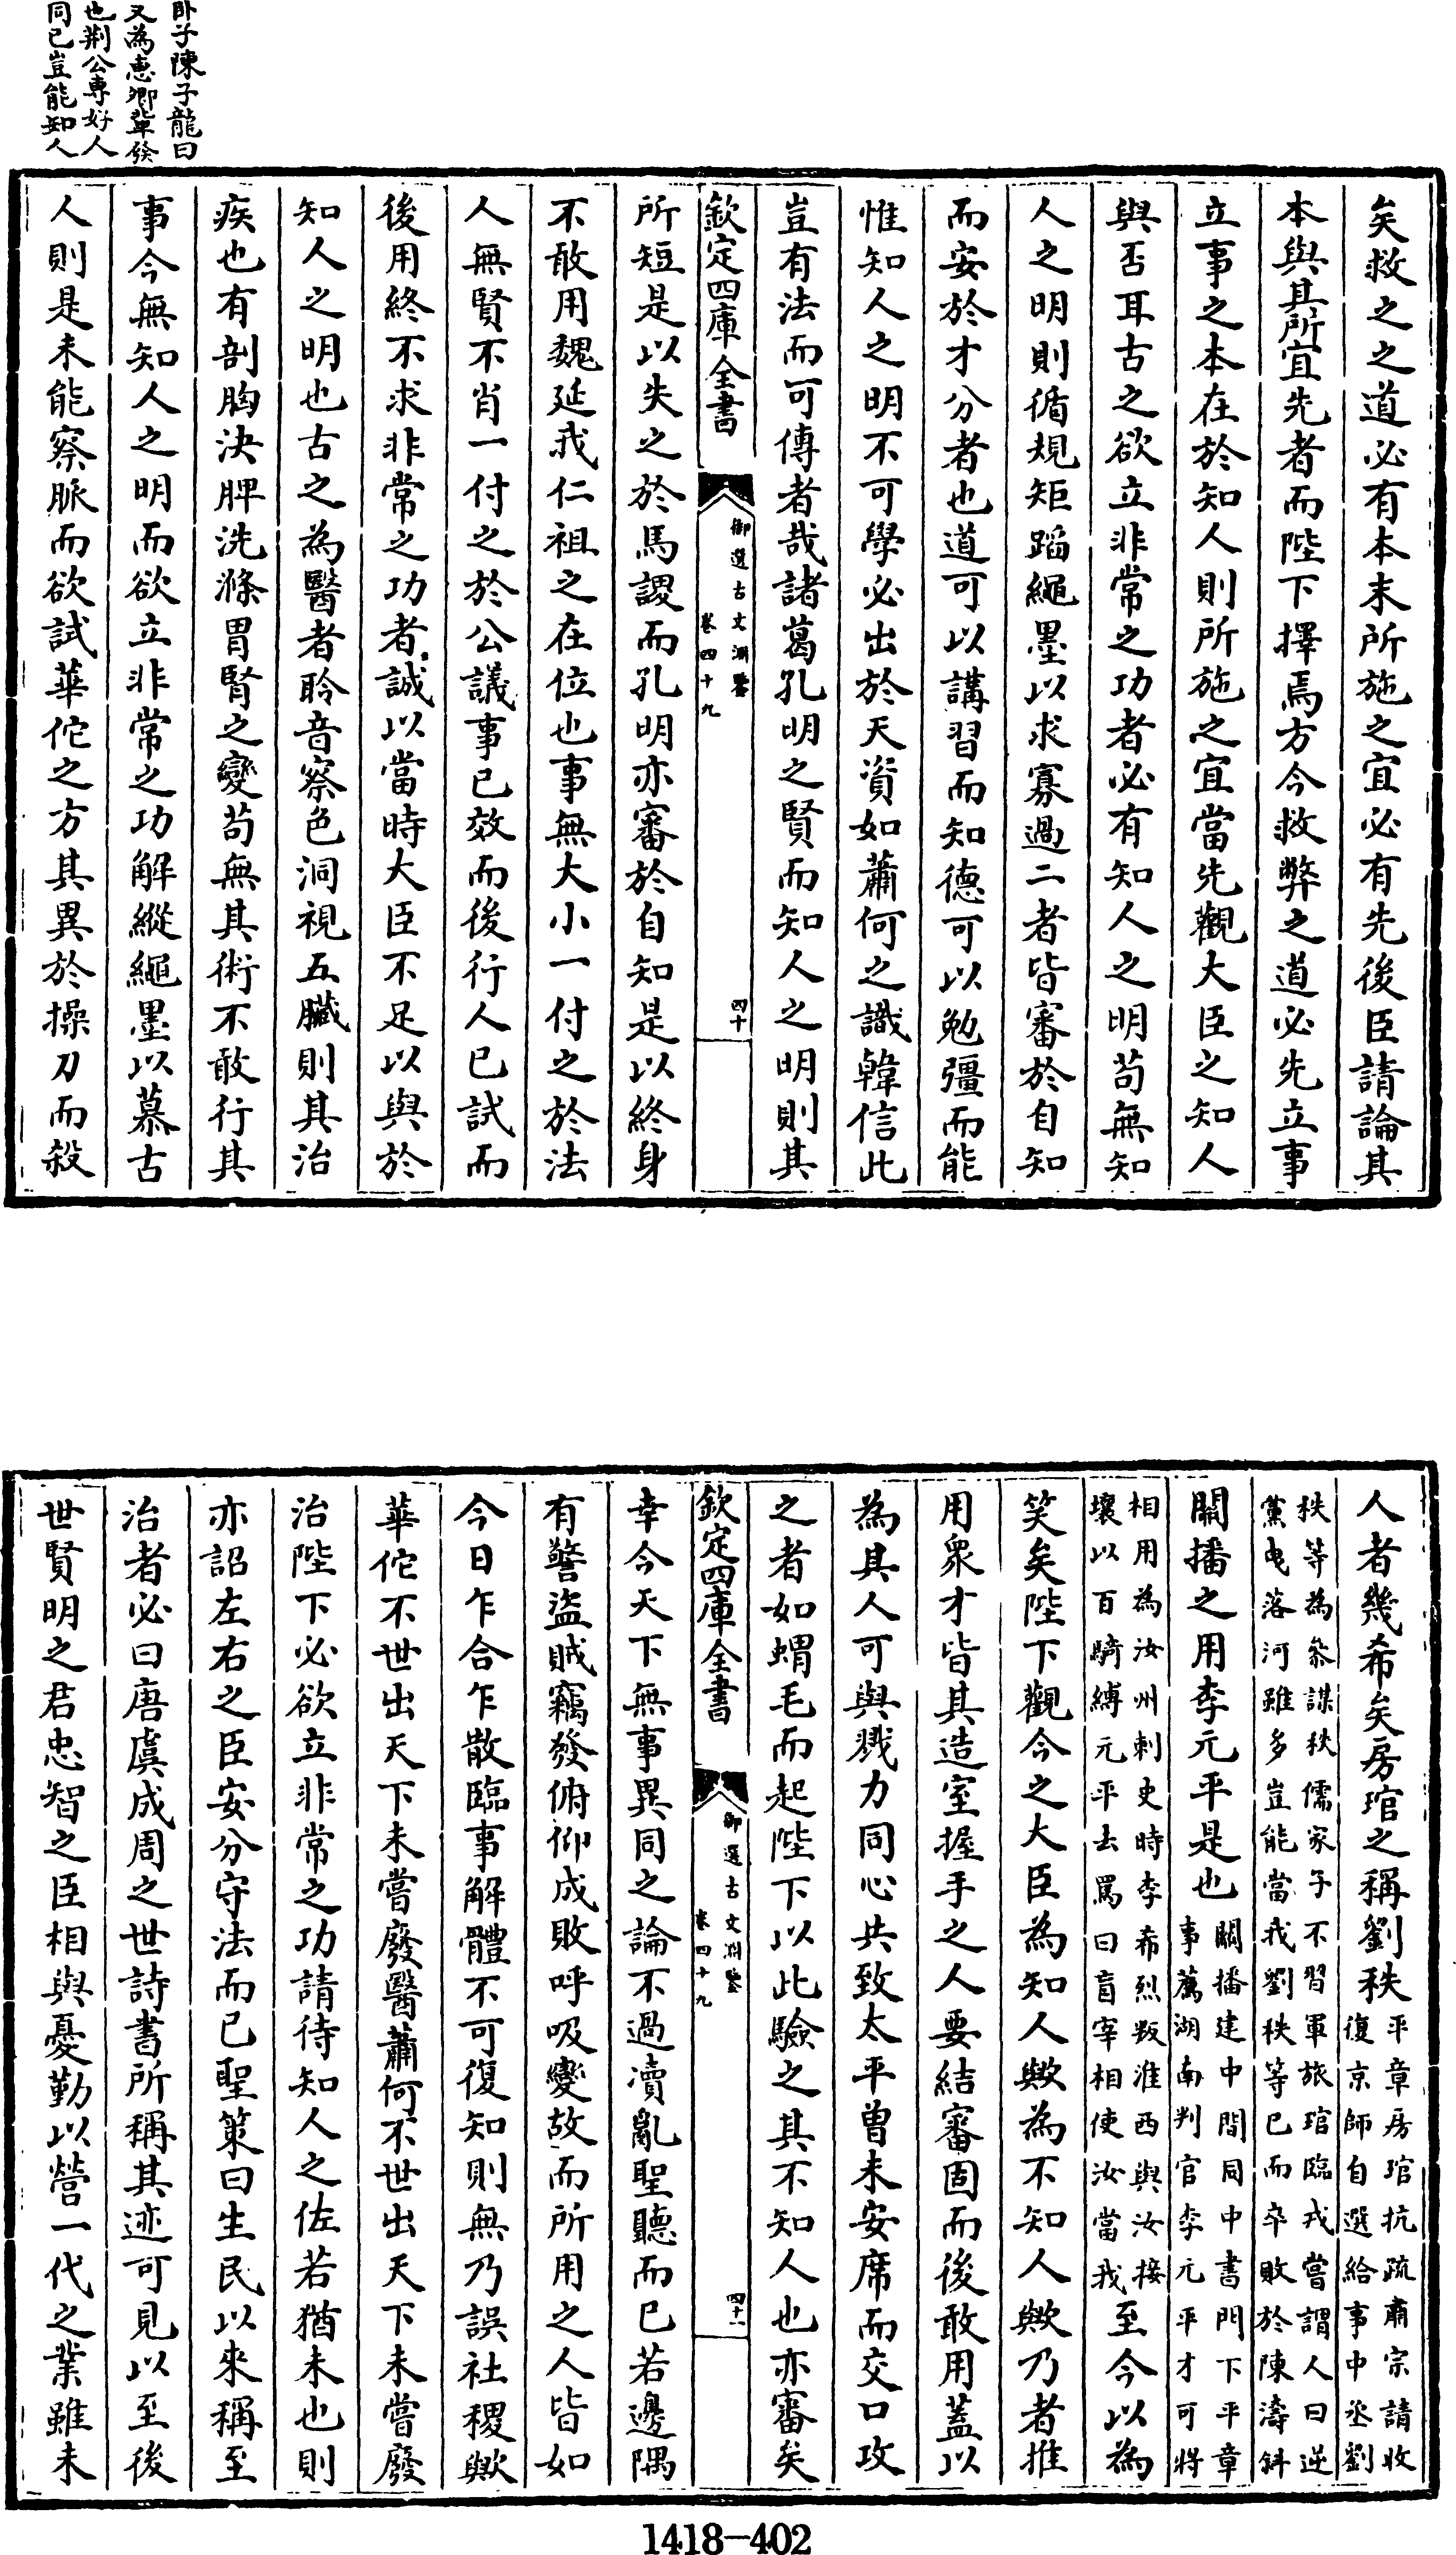 卧子陳子龍曰
又為惠卿輩發
也荆公專好人
同已豈能知人
矣救之之道必有本末所施之宜必有先後臣請論其
本與其所宜先者而陛下擇焉方今救弊之道必先立事
立事之本在於知人則所施之宜當先觀大臣之知人
與否耳古之欲立非常之功者必有知人之明苟無知
人之明則循規矩蹈繩墨以求寡過二者皆審於自知
而安於才分者也道可以講習而知德可以勉彊而能
惟知人之明不可學必出於天資如蕭何之識韓信此
豈有法而可傳者哉諸葛孔明之賢而知人之明則其
欽定四庫全書
御選古文淵鑒
卷四十九
四十
所短是以失之於馬謖而孔明亦審於自知是以終身
不敢用魏延我仁祖之在位也事無大小一付之於法
人無賢不肖一付之於公議事已效而後行人已試而
後用終不求非常之功者誠以當時大臣不足以與於
知人之明也古之為醫者聆音察色洞視五臟則其治
疾也有剖胸決脾洗滌胃腎之變苟無其術不敢行其
事今無知人之明而欲立非常之功解縱繩墨以慕古
人則是未能察脈而欲試華佗之方其異於操刀而殺
人者幾希矣房琯之稱劉秩
平章房琯抗疏肅宗請收
復京師自選給事中丞劉
秩等為叅謀秩儒家子不習軍旅琯臨戎嘗謂人曰逆
黨曳落河雖多豈能當我劉秩等已而卒敗於陳濤斜
關播之用李元平是也
關播建中間同中書門下平章
事薦湖南判官李元平才可將
相用為汝州刺史時李希烈叛淮西與汝接
壤以百騎縛元平去罵曰盲宰相使汝當我
至今以為
笑矣陛下觀今之大臣為知人歟為不知人歟乃者推
用衆才皆其造室握手之人要結審固而後敢用蓋以
為其人可與戮力同心共致太平曾未安席而交口攻
之者如蝟毛而起陛下以此驗之其不知人也亦審矣
欽定四庫全書
御選古文淵鑒
卷四十九
四十一
幸今天下無事異同之論不過瀆亂聖聽而已若邊隅
有警盜賊竊發俯仰成敗呼吸變故而所用之人皆如
今日乍合乍散臨事解體不可復知則無乃誤社稷歟
華佗不世出天下未嘗廢醫蕭何不世出天下未嘗廢
治陛下必欲立非常之功請待知人之佐若猶未也則
亦詔左右之臣安分守法而已聖策曰生民以來稱至
治者必曰唐虞成周之世詩書所稱其迹可見以至後
世賢明之君忠智之臣相與憂勤以營一代之業雖未
1418-402